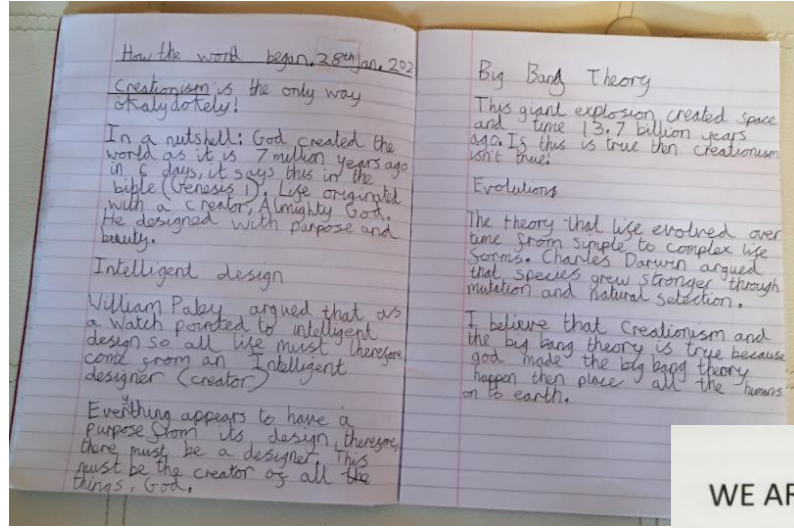 How the world began. 28th Jan. 202
Creationism is the only way
okalydokely!
In a nutshell: God created the
world as it is 7 million years ago
in 6 days, it says this in the
bible (Genesis 1). Life originated
with a creator, Almighty God.
He designed with purpose and
beauty.
Intelligent design
William Paley argued that as
a watch pointed to intelligent
design so all life must therefore
come from an Intelligent
designer (creator)
Everything appears to have a
purpose from its design, therefore,
there must be a designer. This
must be the creator of all the
things, God.
Big Bang Theory
This giant explosion created space
and time 13.7 billion years
ago. If this is true then creationism
isn't true!
Evolution
The theory that life evolved over
time from simple to complex life
forms. Charles Darwin argued
that species grew stronger through
mutation and natural selection.
I believe that Creationism and
the big bang theory is true because
god made the big bang theory
happen then place all the humans
on to earth.
WE AR